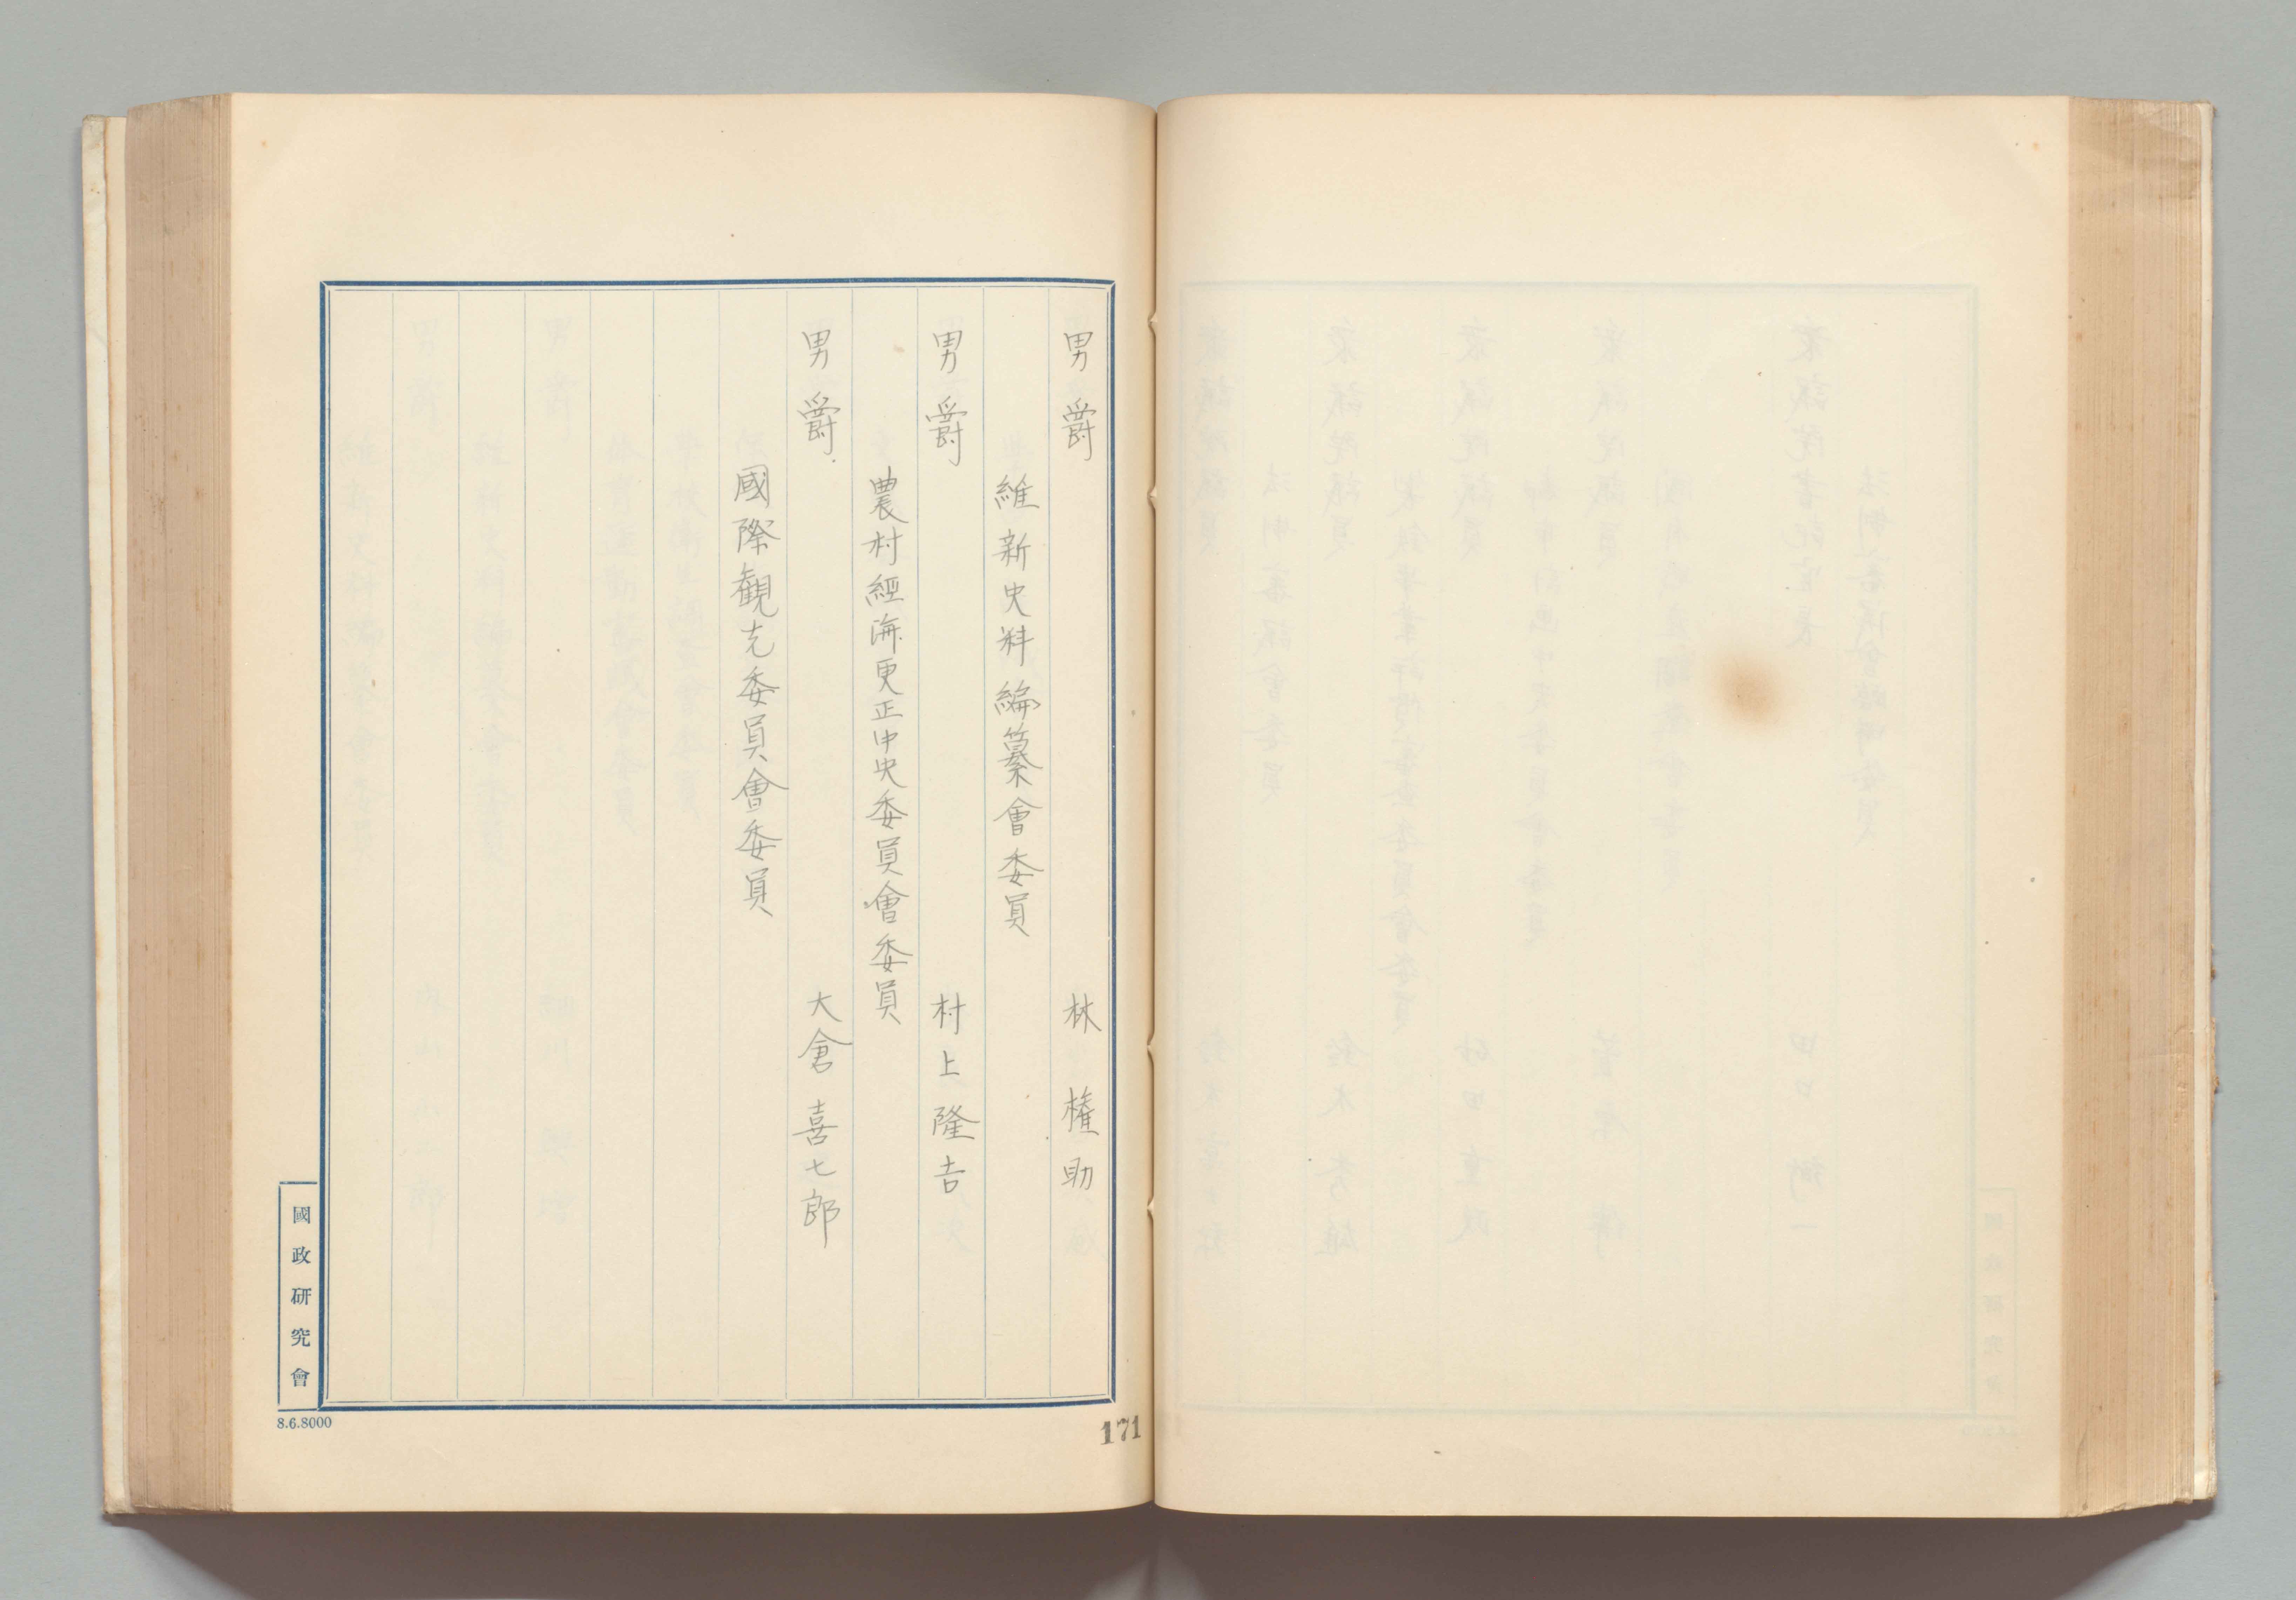 男爵 林權助
維新史料編纂會委員
男爵 村上隆吉
農村經濟更正中央委員會委員
男爵 大倉喜七郎
國際観光委員會委員
國政研究會
8.6.8000
171